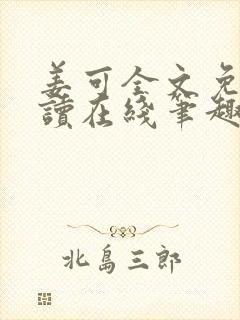 姜可全文免
讀在綫筆趣
北島三郎